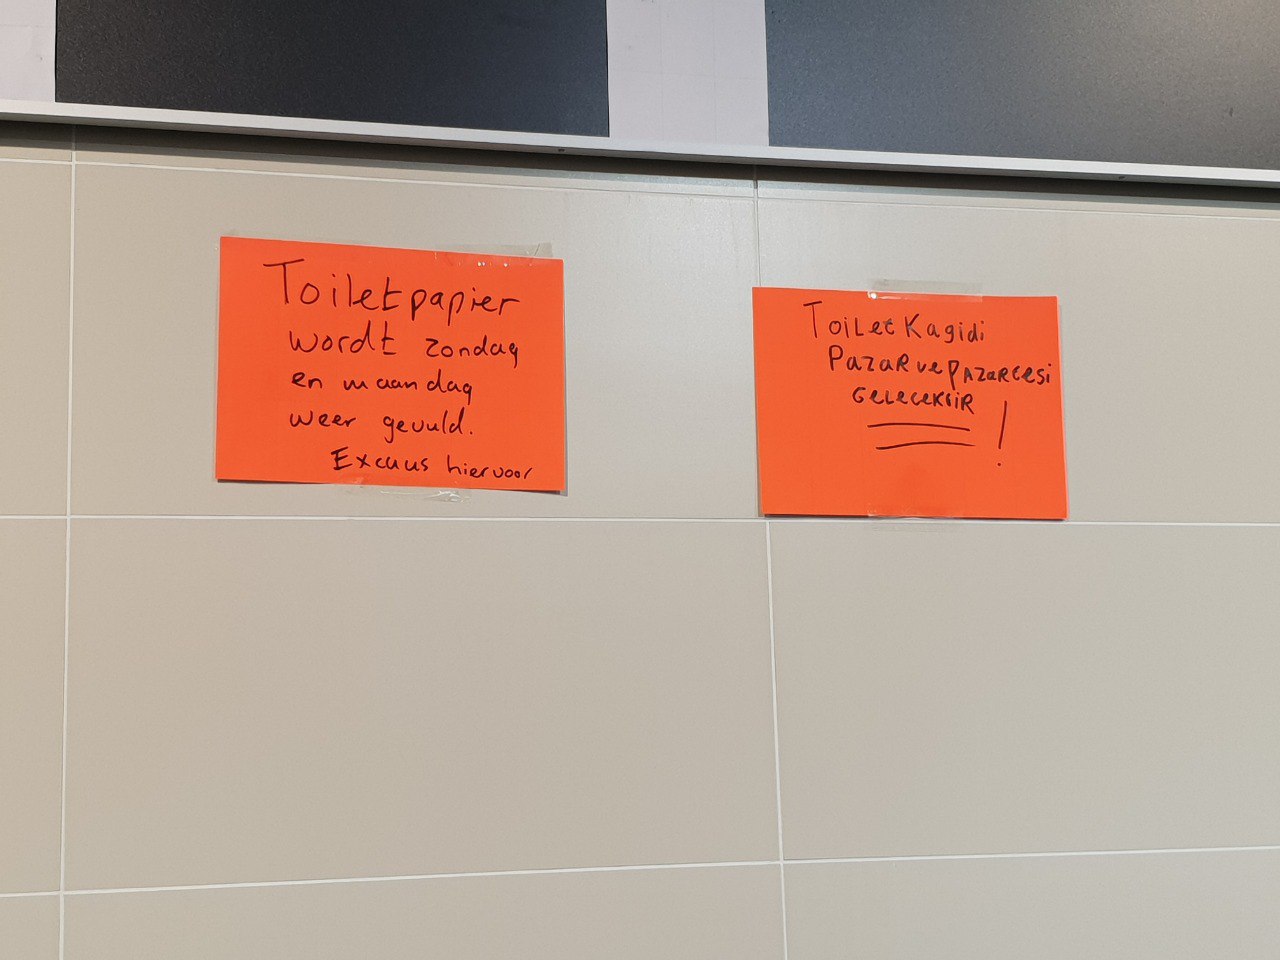 Toiletpapier
wordt zondag
en maandag
weer gevuld.
Excuus hiervoor
Toilet Kagidi
Pazar ve pazarcesi
Geleceksir
!